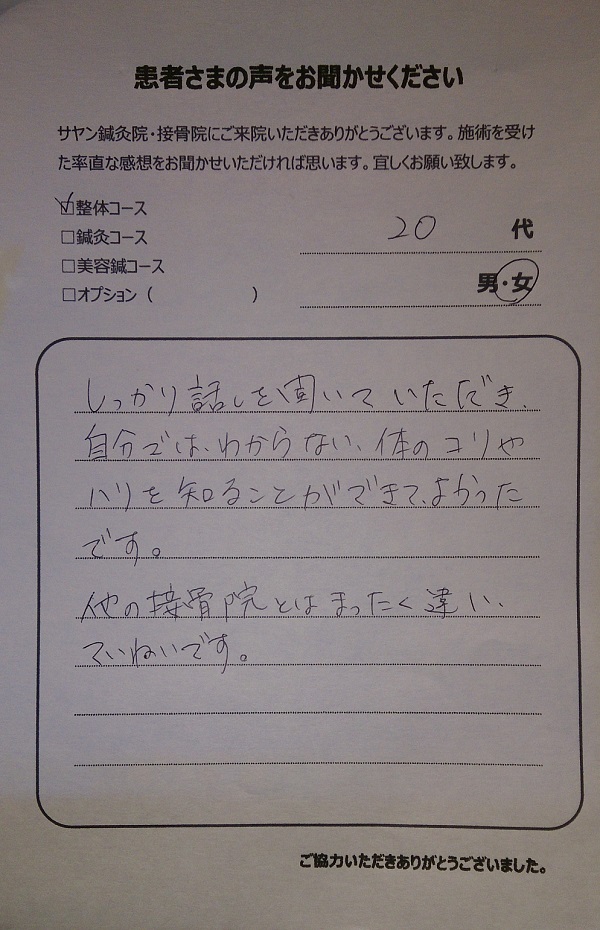 患者さまの声をお聞かせください
サヤン鍼灸院・接骨院にご来院いただきありがとうございます。施術を受け
た率直な感想をお聞かせいただければ思います。宜しくお願い致します。
☑整体コース
□鍼灸コース
□美容鍼コース
□オプション（　　　　　）
20 代
男・女
しっかり話しを聞いていただき、
自分では、わからない、体のコリや
ハリを知ることができて、よかった
です。
他の接骨院とはまったく違い、
ていねいです。
ご協力いただきありがとうございました。